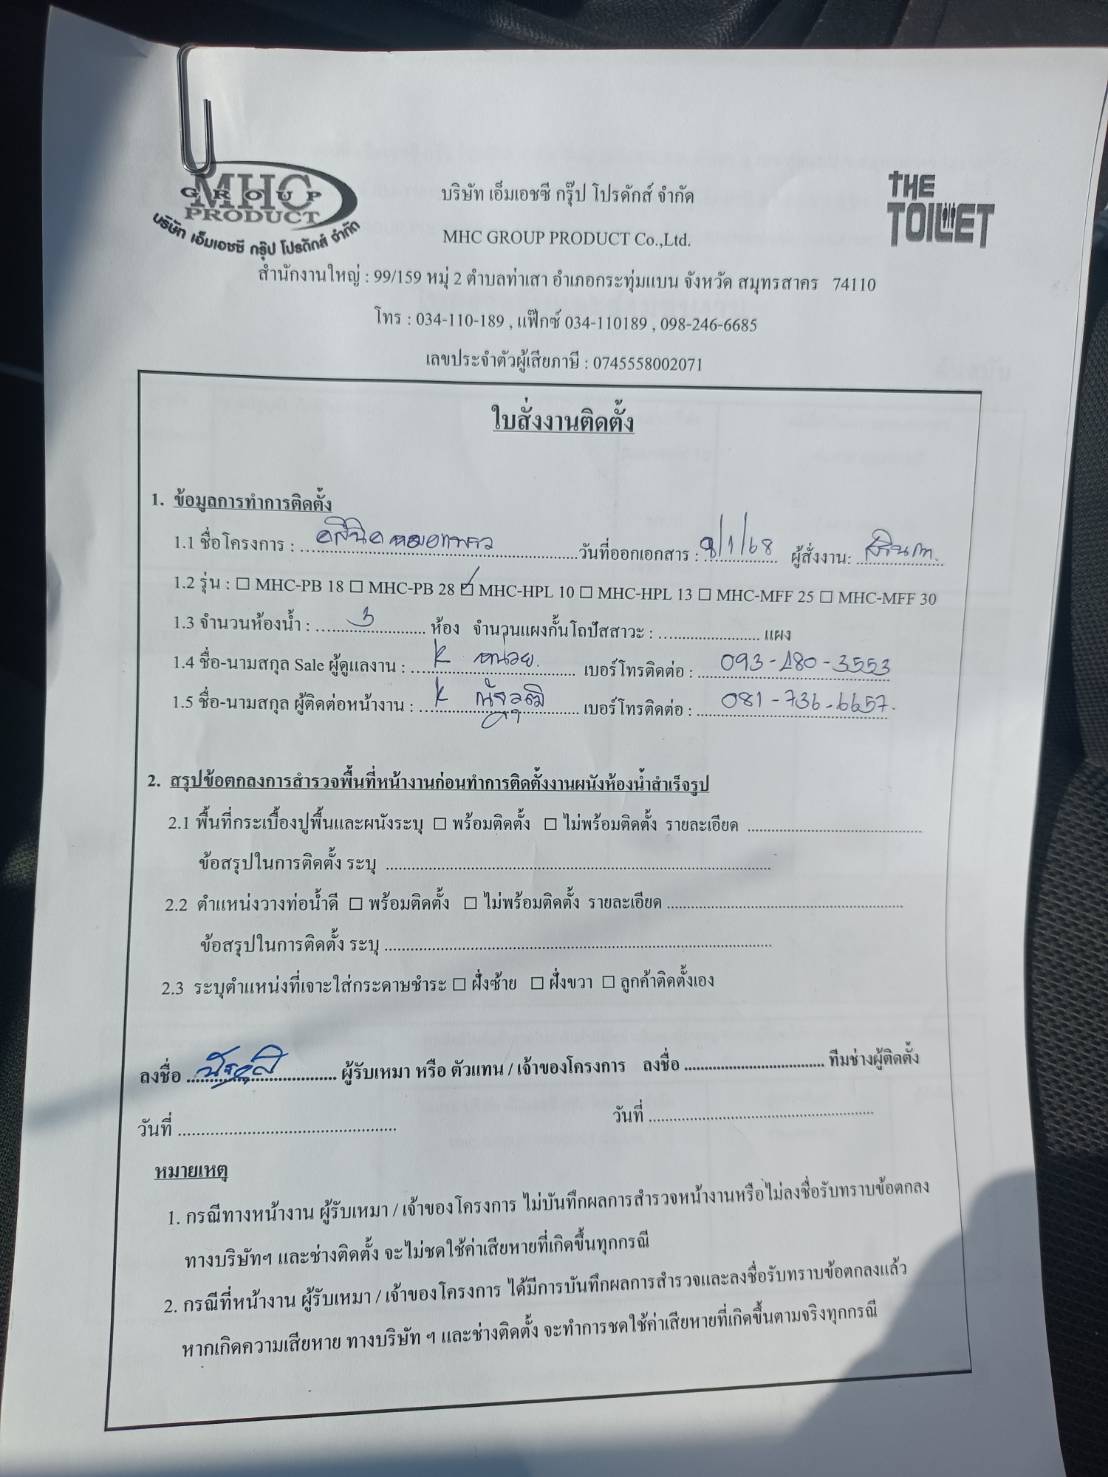 MHC
GROUP
PRODUCT
บริษัท เอ็มเอชซี กรุ๊ป โปรดักส์ จำกัด
THE
TOILET
บริษัท เอ็มเอชซี กรุ๊ป โปรดักส์ จำกัด
MHC GROUP PRODUCT Co.,Ltd.
สำนักงานใหญ่ : 99/159 หมู่ 2 ตำบลท่าเสา อำเภอกระทุ่มแบน จังหวัด สมุทรสาคร 74110
โทร : 034-110-189 , แฟ๊กซ์ 034-110189 , 098-246-6685
เลขประจำตัวผู้เสียภาษี : 0745558002071
ใบสั่งงานติดตั้ง
1. ข้อมูลการทำการติดตั้ง
1.1 ชื่อโครงการ : วันที่ออกเอกสาร : 9/1/68 ผู้สั่งงาน:
1.2 รุ่น : ☐ MHC-PB 18 ☐ MHC-PB 28 ☑ MHC-HPL 10 ☐ MHC-HPL 13 ☐ MHC-MFF 25 ☐ MHC-MFF 30
1.3 จำนวนห้องน้ำ : 3 ห้อง จำนวนแผงกั้นโถปัสสาวะ : แผง
1.4 ชื่อ-นามสกุล Sale ผู้ดูแลงาน : K หน่อย. เบอร์โทรติดต่อ : 093-280-3553
1.5 ชื่อ-นามสกุล ผู้ติดต่อหน้างาน : K ณัฐวุฒิ เบอร์โทรติดต่อ : 081-736-6657.
2. สรุปข้อตกลงการสำรวจพื้นที่หน้างานก่อนทำการติดตั้งงานผนังห้องน้ำสำเร็จรูป
2.1 พื้นที่กระเบื้องปูพื้นและผนังระบุ ☐ พร้อมติดตั้ง ☐ ไม่พร้อมติดตั้ง รายละเอียด
ข้อสรุปในการติดตั้ง ระบุ
2.2 ตำแหน่งวางท่อน้ำดี ☐ พร้อมติดตั้ง ☐ ไม่พร้อมติดตั้ง รายละเอียด
ข้อสรุปในการติดตั้ง ระบุ
2.3 ระบุตำแหน่งที่เจาะใส่กระดาษชำระ ☐ ฝั่งซ้าย ☐ ฝั่งขวา ☐ ลูกค้าติดตั้งเอง
ลงชื่อ ผู้รับเหมา หรือ ตัวแทน / เจ้าของโครงการ ลงชื่อ ทีมช่างผู้ติดตั้ง
วันที่ วันที่
หมายเหตุ
1. กรณีทางหน้างาน ผู้รับเหมา / เจ้าของโครงการ ไม่บันทึกผลการสำรวจหน้างานหรือไม่ลงชื่อรับทราบข้อตกลง
ทางบริษัทฯ และช่างติดตั้ง จะไม่ชดใช้ค่าเสียหายที่เกิดขึ้นทุกกรณี
2. กรณีที่หน้างาน ผู้รับเหมา / เจ้าของโครงการ ได้มีการบันทึกผลการสำรวจและลงชื่อรับทราบข้อตกลงแล้ว
หากเกิดความเสียหาย ทางบริษัท ฯ และช่างติดตั้ง จะทำการชดใช้ค่าเสียหายที่เกิดขึ้นตามจริงทุกกรณี